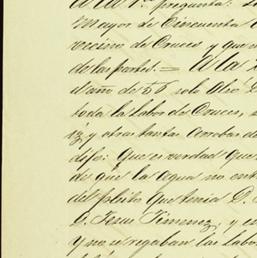 a la 1ª pregunta:
Mayor de Cincuenta
vecino de Cruces y que
de las partes. = A la
el año de 56 solo
toda la labor de Cruces,
iz y otras tantas arrobas de
dijo: Que es verdad que
de que la agua no
del pleito que tenia D.
D. Jesus Jimenez, y
Y no se regaban las labo